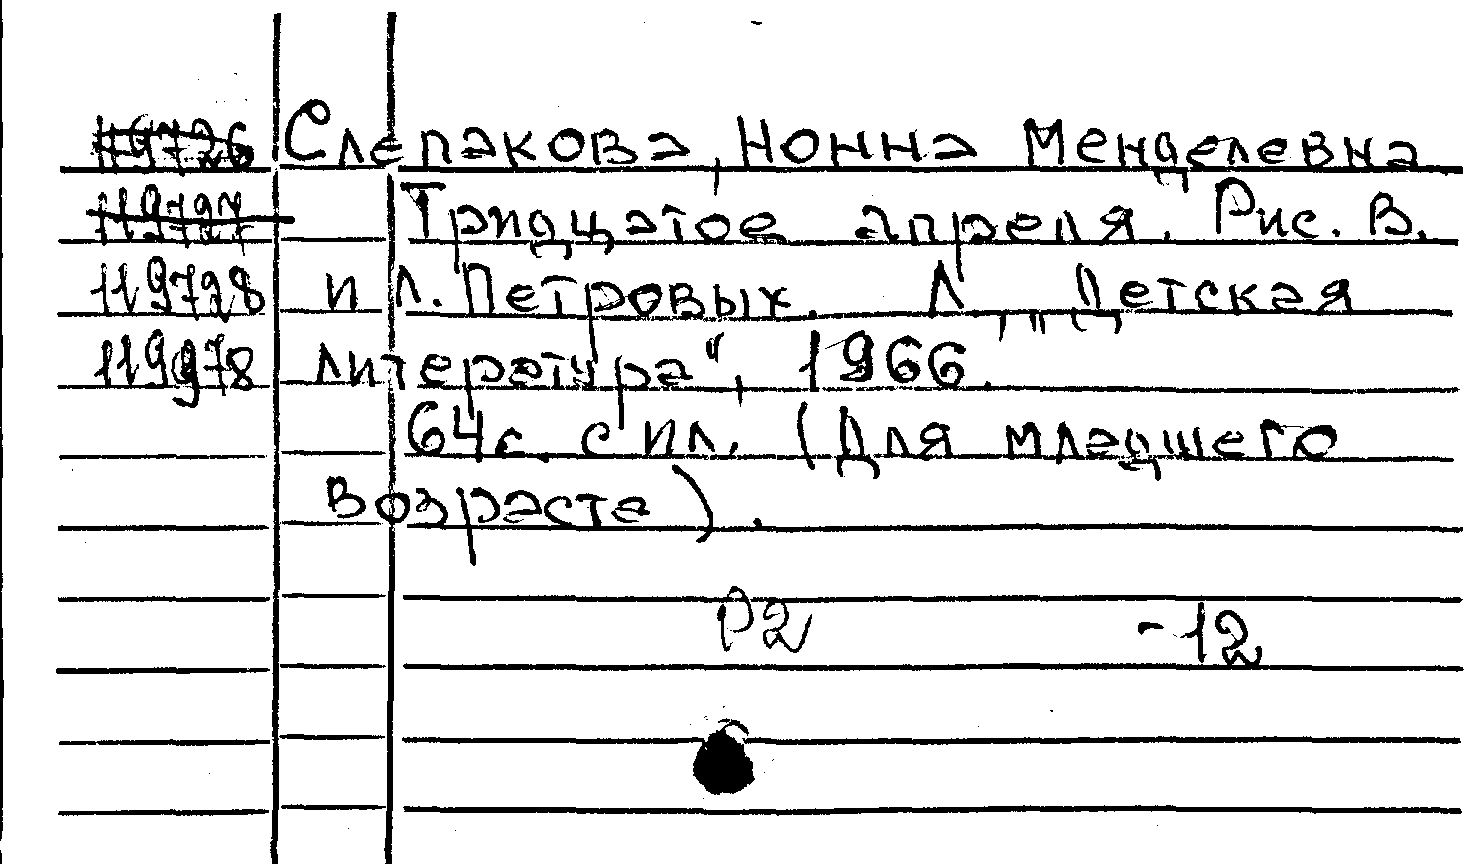 119726 Слепакова, Нонна Менделевна
119727 Тридцатое апреля. Рис. В.
119728 и Л. Петровых. Л „Детская
119978 литература", 1966.
64с. с ил. (Для младшего
возраста).
Р2 -12